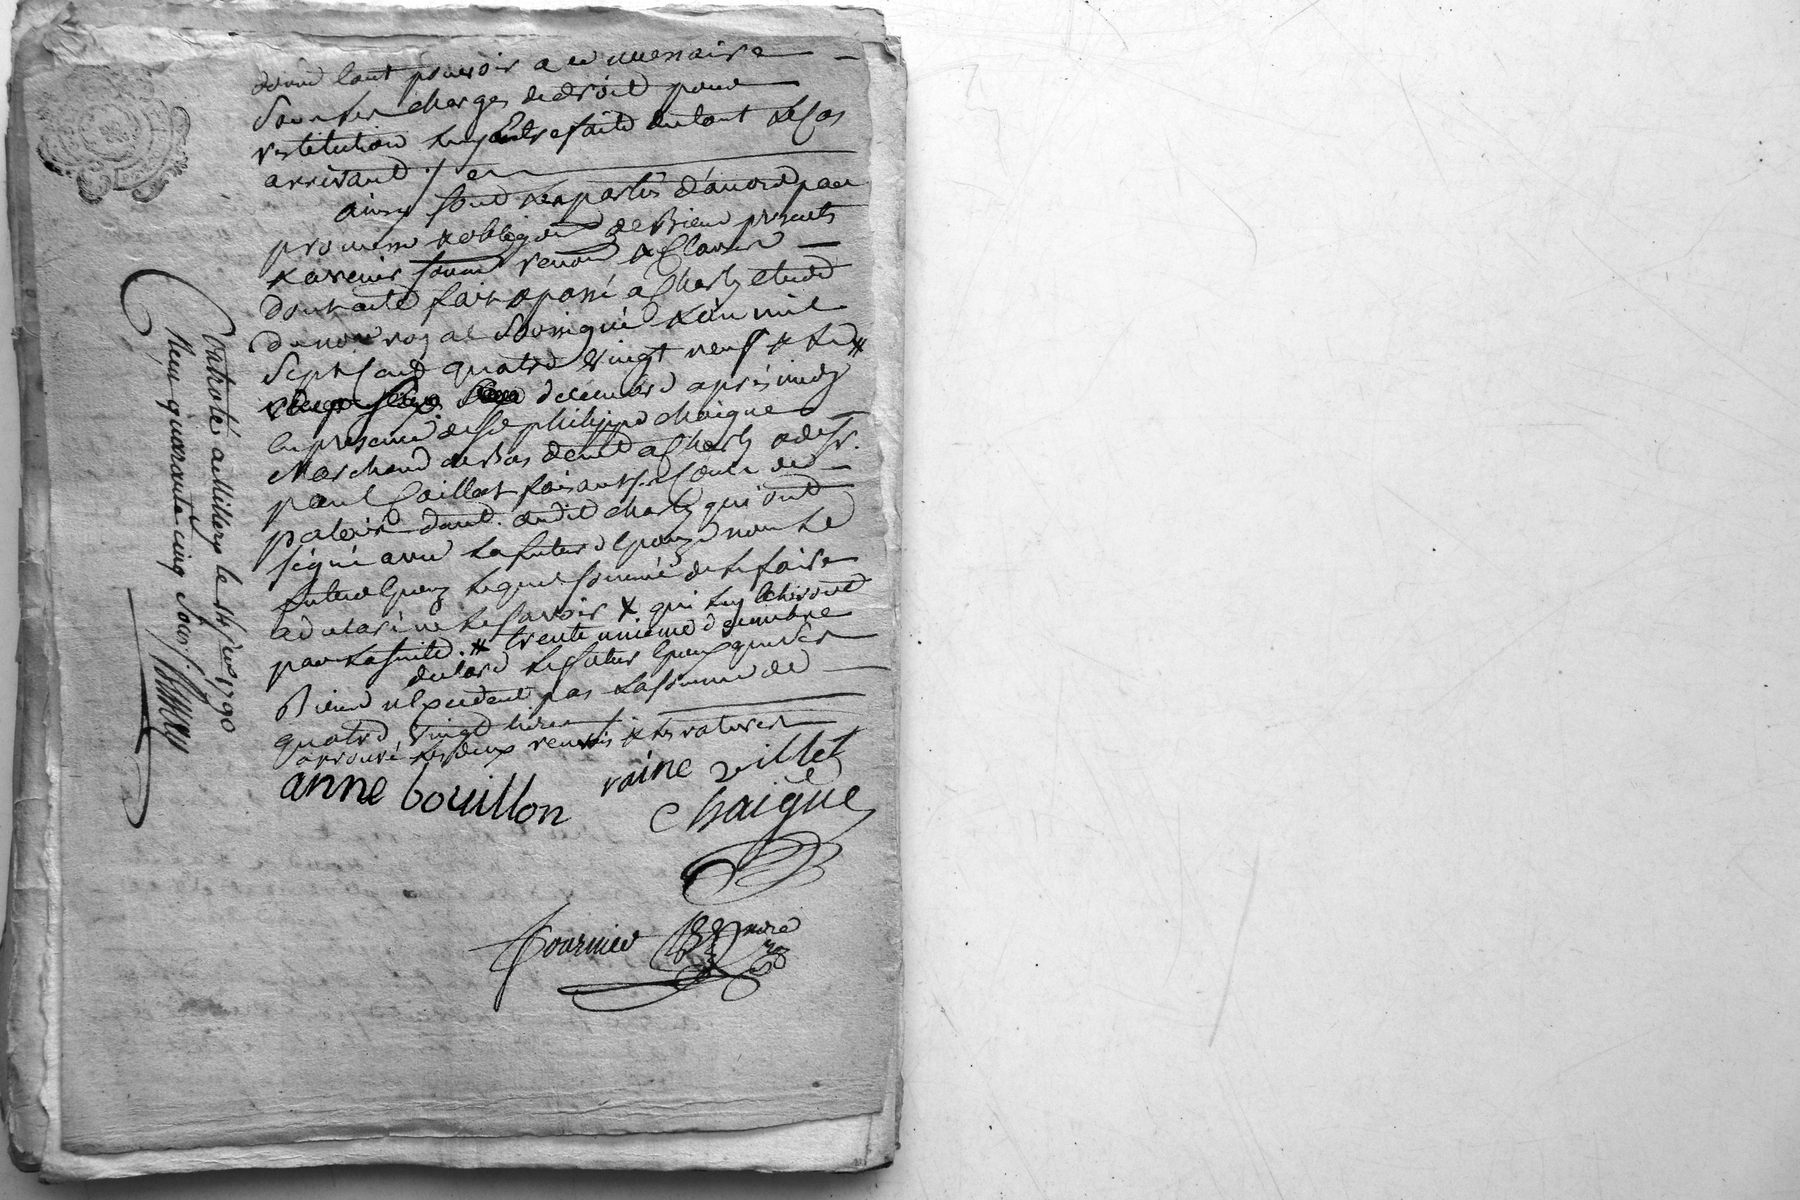 donne tout pouvoir a ce necessaire
sous les charges de droit pour
restitution luy etre faite du tout le cas
arrivant ./. en
ainsy sont les parties d'accord par
promesse & obligeant de biens presents
& avenir soumis renon & clause
dont acte fait & passé a Charly etude
du no.re royal soussigné l'an mil
sept cent quatre vingt neuf & le #
decembre après midy
en presence de Sr philippe Chaigne
Marchand de Bas demt a Charly & de Sr.
paul Caillot
demt. audit Charly qui ont
signé avec la future Epouze non le
futur Epouz lequel sommé de le faire
a declaré ne le savoir X qui luy echeront
par la suite. # trente unieme decembre
declare le futur Epoux que ses
Biens n'excedent pas la somme de
quatre vingt livres
approuvé les deux renvois & les ratures
anne bouillon raine villet
Chaigne
fournier
Controlé a Millery le 14 janv 1790
Reçu quarante cinq Sous